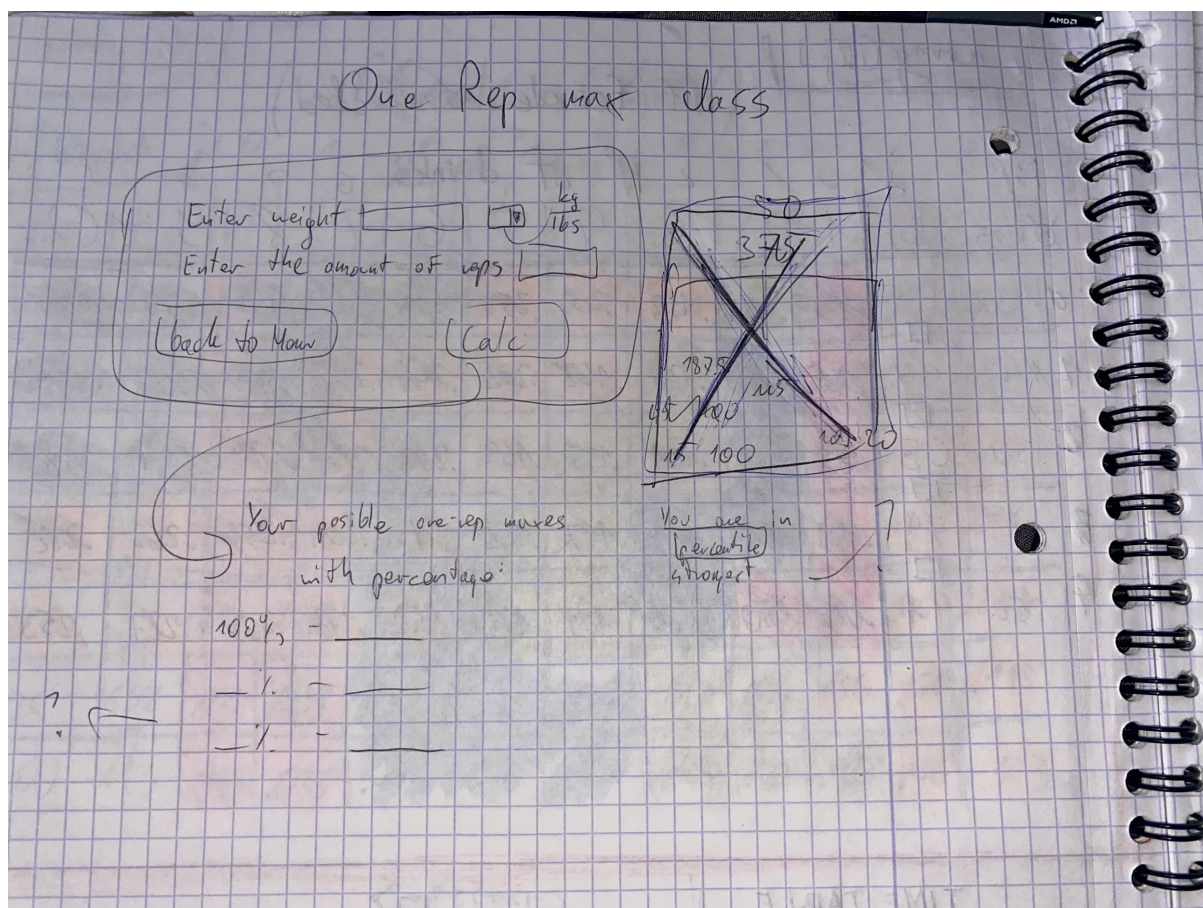 AMD
One Rep max class
Enter weight kg
lbs
Enter the amount of reps
back to Calc
50
375
1875
115
15 100 20
Your posible one-rep maxes
with percentage:
You are in
percentile
strongest
?
100% -
% -
% -
?